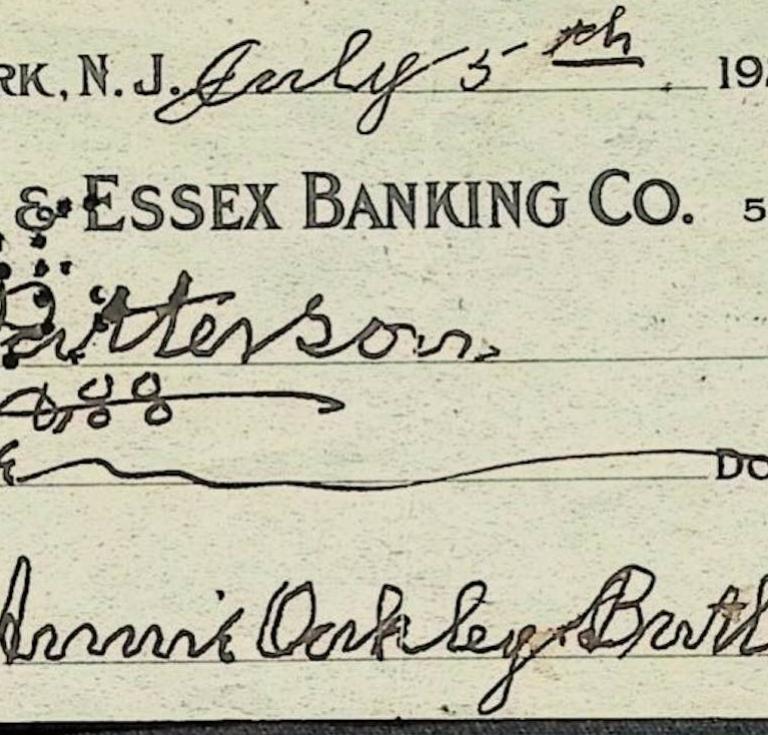 RK, N. J. July 5th 19
& ESSEX BANKING CO. 5
Patterson
00
DO
Annie Oakley Butl